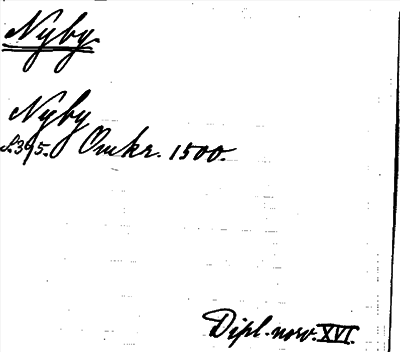 Nyby
Nyby
S.395. Omkr. 1500.
Dipl. norv. XVI.